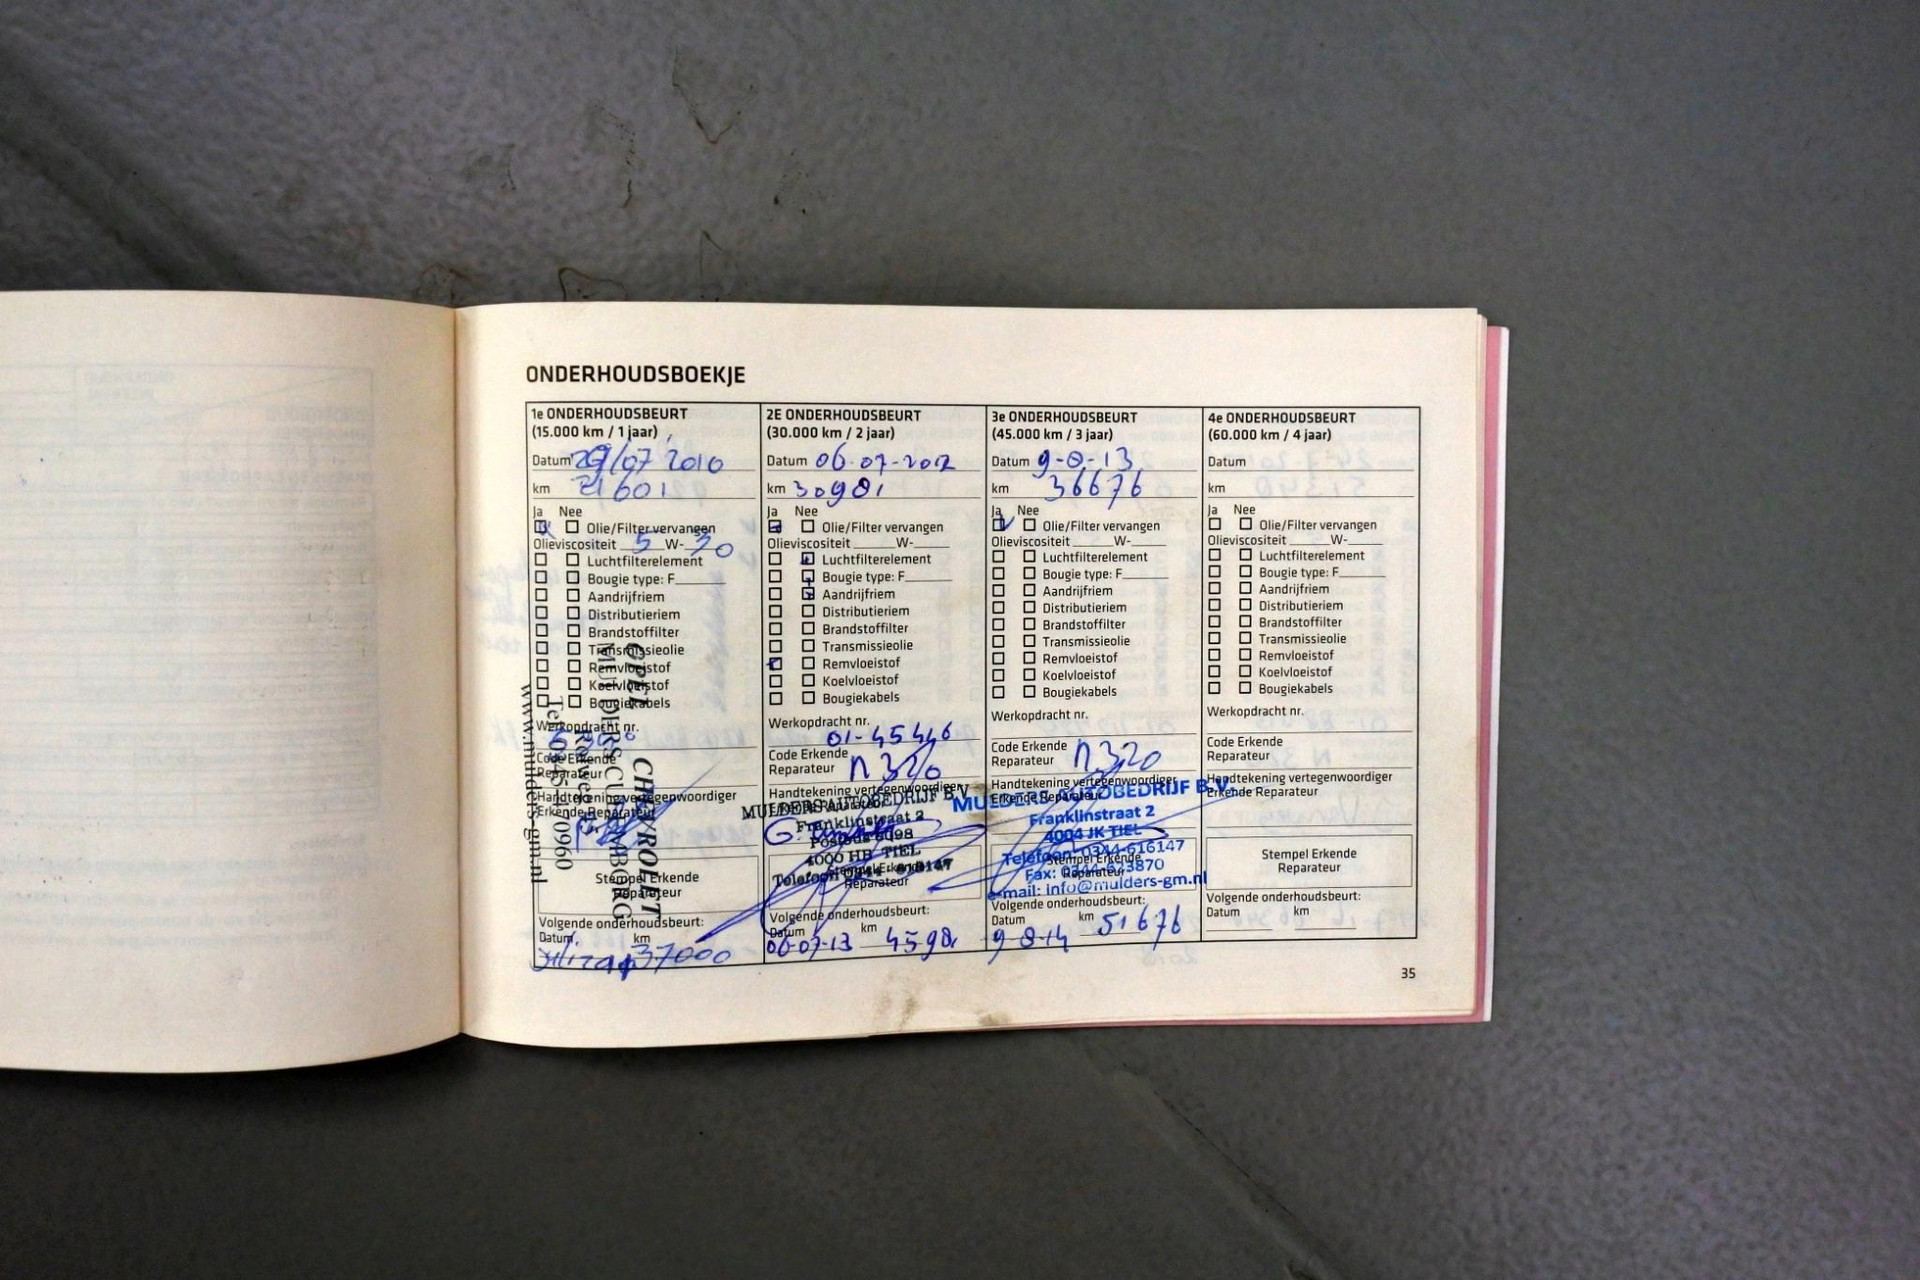 ONDERHOUDSBOEKJE
1e ONDERHOUDSBEURT
(15.000 km / 1 jaar)
Datum 29/07 2010
km 21601
Ja Nee
Olie/Filter vervangen
Olieviscositeit 5 W- 30
Luchtfilterelement
Bougie type: F
Aandrijfriem
Distributieriem
Brandstoffilter
Transmissieolie
Remvloeistof
Koelvloeistof
Bougiekabels
Werkopdracht nr.
Code Erkende
Reparateur
Handtekening vertegenwoordiger
Erkende Reparateur
OPEL CHEVROLET
MULDERS CULEMBORG
www.mulders-gm.nl
Stempel Erkende
Reparateur
Volgende onderhoudsbeurt:
Datum km
37000
2E ONDERHOUDSBEURT
(30.000 km / 2 jaar)
Datum 06-07-2012
km 30981
Ja Nee
Olie/Filter vervangen
Olieviscositeit W-
Luchtfilterelement
Bougie type: F
Aandrijfriem
Distributieriem
Brandstoffilter
Transmissieolie
Remvloeistof
Koelvloeistof
Bougiekabels
Werkopdracht nr.
01-45446
Code Erkende
Reparateur n320
Handtekening vertegenwoordiger
Erkende Reparateur
MULDERS AUTOBEDRIJF B.V.
Franklinstraat 2
Postbus 6098
4000 HB TIEL
Telefoon 0344 - 616147
Stempel Erkende
Reparateur
Volgende onderhoudsbeurt:
Datum km
06-07-13 45981
3e ONDERHOUDSBEURT
(45.000 km / 3 jaar)
Datum 9-8-13
km 36676
Ja Nee
Olie/Filter vervangen
Olieviscositeit W-
Luchtfilterelement
Bougie type: F
Aandrijfriem
Distributieriem
Brandstoffilter
Transmissieolie
Remvloeistof
Koelvloeistof
Bougiekabels
Werkopdracht nr.
Code Erkende
Reparateur n320
Handtekening vertegenwoordiger
Erkende Reparateur
MULDERS AUTOBEDRIJF B.V.
Franklinstraat 2
4004 JK TIEL
Telefoon: 0344-616147
Fax: 0344-623870
e-mail: info@mulders-gm.nl
Stempel Erkende
Reparateur
Volgende onderhoudsbeurt:
Datum km 51676
9-8-14
4e ONDERHOUDSBEURT
(60.000 km / 4 jaar)
Datum
km
Ja Nee
Olie/Filter vervangen
Olieviscositeit W-
Luchtfilterelement
Bougie type: F
Aandrijfriem
Distributieriem
Brandstoffilter
Transmissieolie
Remvloeistof
Koelvloeistof
Bougiekabels
Werkopdracht nr.
Code Erkende
Reparateur
Handtekening vertegenwoordiger
Erkende Reparateur
Stempel Erkende
Reparateur
Volgende onderhoudsbeurt:
Datum km
35